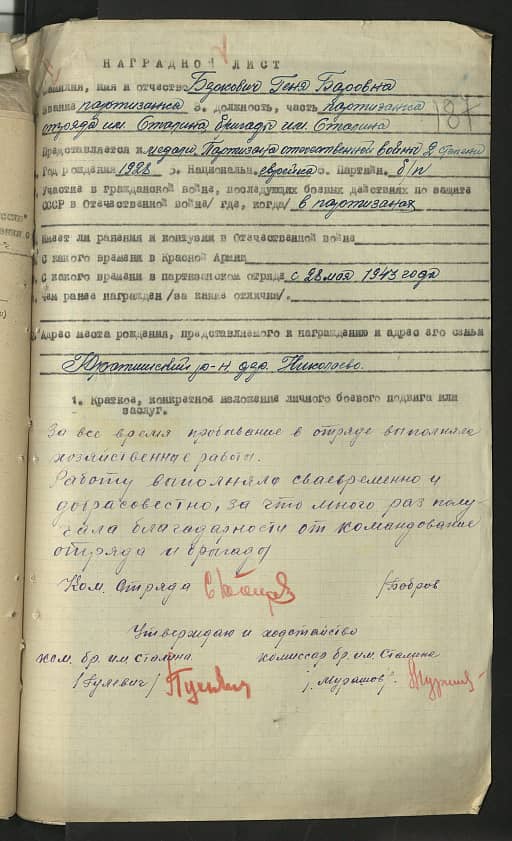 НАГРАДНОЙ ЛИСТ
амилия, имя и отчество Беркович Геня Боровна
Звание партизанка 3. Должность, часть партизанка
187
отряда им. Сталина бригады им. Сталина
Представляется к медали Партизана отечественной войны 2 степени
Год рождения 1928 5. Национальн. еврейка 6. Партийн. б/п
Участие в гражданской войне, последующих боевых действиях по защите
СССР в Отечественной войне/ где, когда/ в партизанах
Имеет ли ранения и контузии в Отечественной войне
С какого времени в Красной Армии
С какого времени в партизанском отряде с 28 мая 1943 года
Чем ранее награжден /за какие отличия/.
Адрес места рождения, представляемого к награждению и адрес его семьи
Юратишский р-н дер. Николаево.
1. Краткое, конкретное изложение личного боевого подвига или
заслуг.
За все время пробывание в отряде выполняла
хозяйственные работы.
Работу выполняла сваевременно и
добрасовестно, за что много раз полу-
чала благадарности от командование
отряда и бригады
Ком. Отряда /Бобров
Утверждаю и ходотайство
ком. бр. им. Сталина комиссар бр. им. Сталина
/Гулевич/ /Мурашов/.